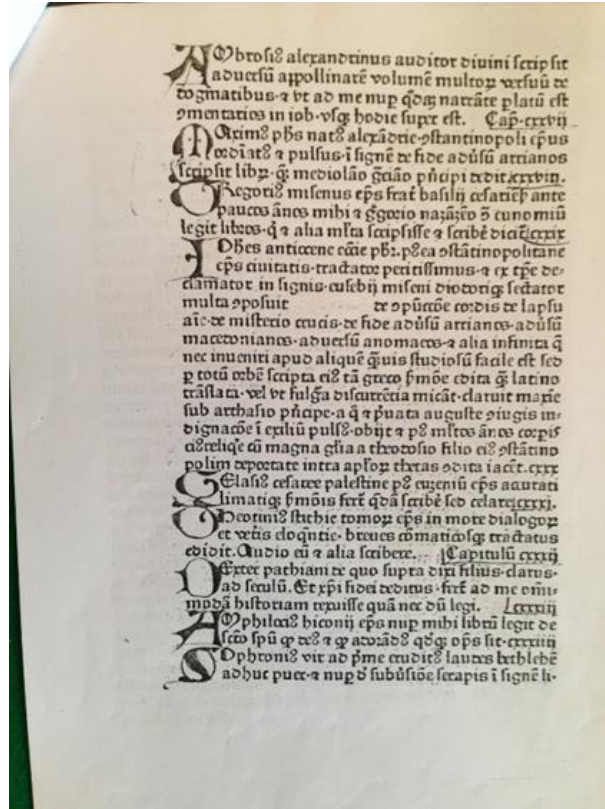 AMbrosiꝰ alexandrinus auditor divini scripsit
adversū appollinarē volumē multoꝝ versuū de
dogmatibus· ⁊ vt ad me nuꝑ q̄daꝫ narrāte platū est
ꝯmentarios in iob· vsqꝫ hodie suꝑest. Cap̄·cxxvij
MAximꝰ ph̄s natꝰ alexādrie·ꝯstantinopoli ep̄us
ordīatꝰ ⁊ pulsus·ī signē de fide adūsū arrianos
scripsit libꝝ·q̄ꝫ mediolāo grāo pn̄cipi dedit.xxxviij.
GRegoriꝰ misenus ep̄s frat̄ basilij cesariēn̄ ante
paucos ānos mihi ⁊ g̊gorio nazāzēo ꝯ̄ eunomiū
legit libros·q̄ ⁊ alia ml̄ta scripsisse ⁊ scribē dicit̄.cxxix
IOh̄es antiocene ecc̄ie pb̄r·p̄ea ꝯstātinopolitane
ep̄s civitatis·tractatoꝛ peritissimus·⁊ ex tp̄e de-
clamatoꝛ in signis·eusebij miseni diodoriqꝫ sectatoꝛ
multa ꝯposuit de ꝯpūccōe coꝛdis de lapsu
aīe·de misterio crucis·de fide adūsū arrianos·adūsū
macedonianos·adversū anomaeos·⁊ alia infinita q̄
nec inveniri apud aliquē q̄ꝫuis studiosū facile est sed
ꝑ totū orbē scripta eiꝰ tā greco ẜmōe edita q̄ꝫ latino
trāslata·vel vt fulgēa discurrētia micāt·claruit maxīe
sub archasio pn̄cipe·a q̄ ⁊ p̄uata auguste ꝯiugis in-
dignacōe ī exiliū pulsꝰ·obijt ⁊ pꝰ ml̄tos ānos coꝛpis
eiꝰ reliq̄e cū magna gl̄ia a theodosio filio eiꝰ ꝯstātino
polim deportate intra apl̄oꝝ thecas ꝯdita iacēt.cxxx
GElasiꝰ cesaree palestine pꝰ euzeniū ep̄s accurati
limatiqꝫ ẜmōis fert̄ q̄dā scribē sed celare.cxxxj.
THeotiniꝰ stichie tomoꝝ ep̄s in more dialogoꝝ
et vet̄is eloq̄ntie·breues cōmaticosqꝫ tractatus
edidit. Audio eū ⁊ alia scribere. Capitulū cxxxij
DExter pathiani de quo supra dixi filius·clarus·
ad seculū. Et xp̄i fidei deditus·fert̄ ad me omī-
modā historiam texuisse quā nec dū legi. cxxxiij
AMphilciꝰ hiconij ep̄s nuꝑ mihi librū legit de
sc̄to spū ꝙ deꝰ ⁊ ꝙ adorādꝰ q̄dqꝫ op̄s sit·cxxxiiij
SOphroniꝰ vir ad p̄me eruditꝰ laudes bethleē
adhuc puer·⁊ nuꝑ d̄ subūsiōe serapis ī signē li-